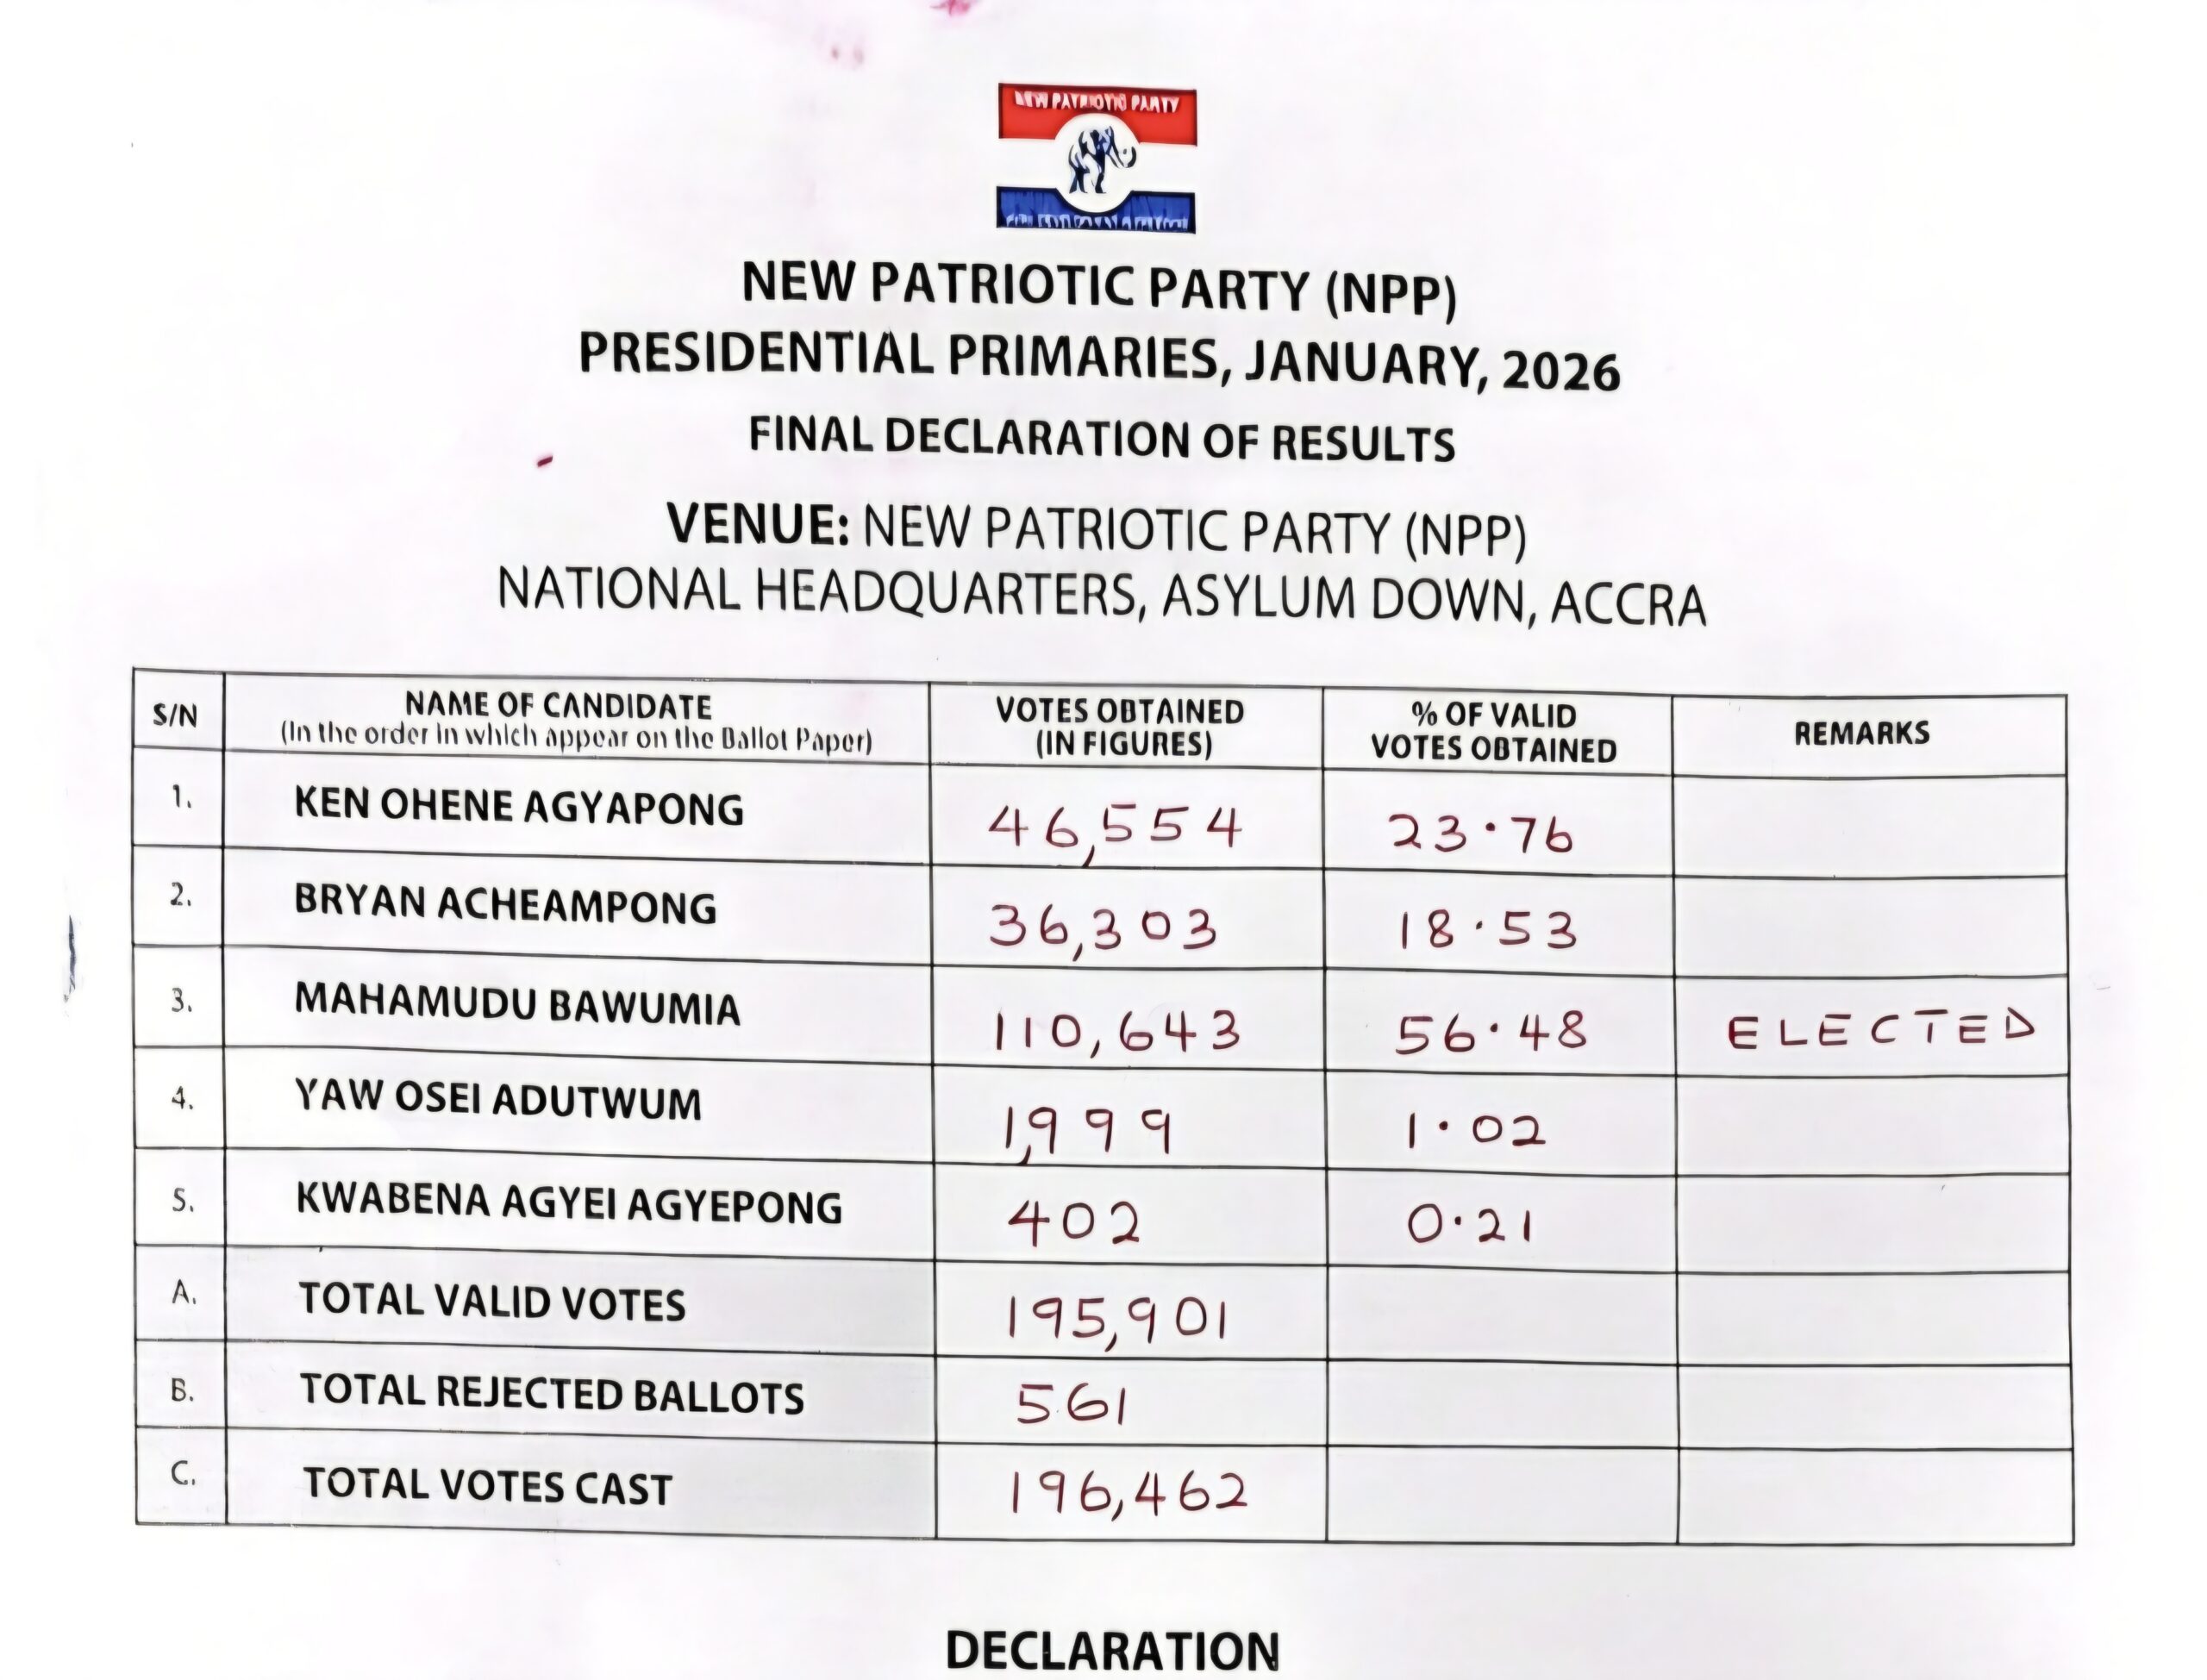 NEW PATRIOTIC PARTY
NEW PATRIOTIC PARTY (NPP)
PRESIDENTIAL PRIMARIES, JANUARY, 2026
FINAL DECLARATION OF RESULTS
VENUE: NEW PATRIOTIC PARTY (NPP)
NATIONAL HEADQUARTERS, ASYLUM DOWN, ACCRA
S/N NAME OF CANDIDATE (In the order in which appear on the Ballot Paper) VOTES OBTAINED (IN FIGURES) % OF VALID VOTES OBTAINED REMARKS
1. KEN OHENE AGYAPONG 46,554 23.76
2. BRYAN ACHEAMPONG 36,303 18.53
3. MAHAMUDU BAWUMIA 110,643 56.48 ELECTED
4. YAW OSEI ADUTWUM 1,999 1.02
5. KWABENA AGYEI AGYEPONG 402 0.21
A. TOTAL VALID VOTES 195,901
B. TOTAL REJECTED BALLOTS 561
C. TOTAL VOTES CAST 196,462
DECLARATION